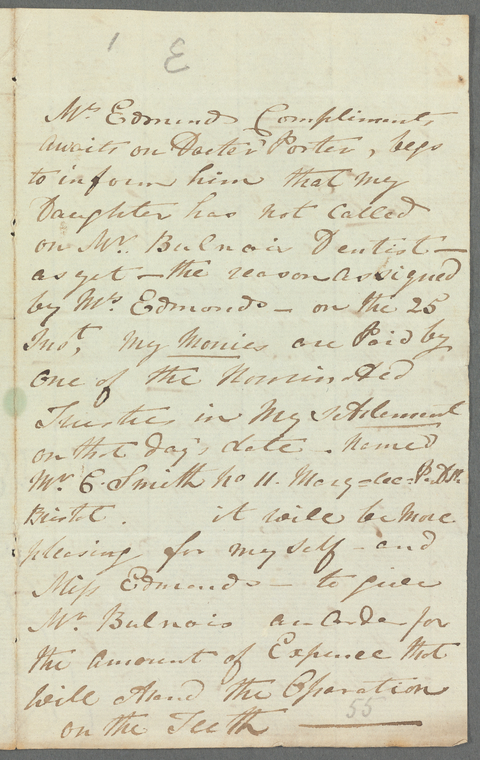 1 E
Mrs Edmonds Compliments
awaits on Docter Porter, begs
to inform him that my
Daughter has not Called
on Mr. Bulnois Dentist —
as yet — the reason assigned
by Mrs. Edmonds — on the 25
Inst, My Monies are Paid by
one of the Nominated
Trusties in My settlement
on that day's date. Named
Mr C. Smith No 11.
Bristol. it will be More
pleasing for myself — and
Miss Edmonds — to give
Mr Bulnois an Order for
the amount of Expence that
will Atand the Oparation
on the Teeth
55